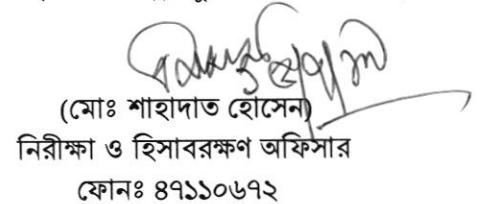 (মোঃ শাহাদাত হোসেন)
নিরীক্ষা ও হিসাবরক্ষণ অফিসার
ফোনঃ ৪৭১১০৬৭২